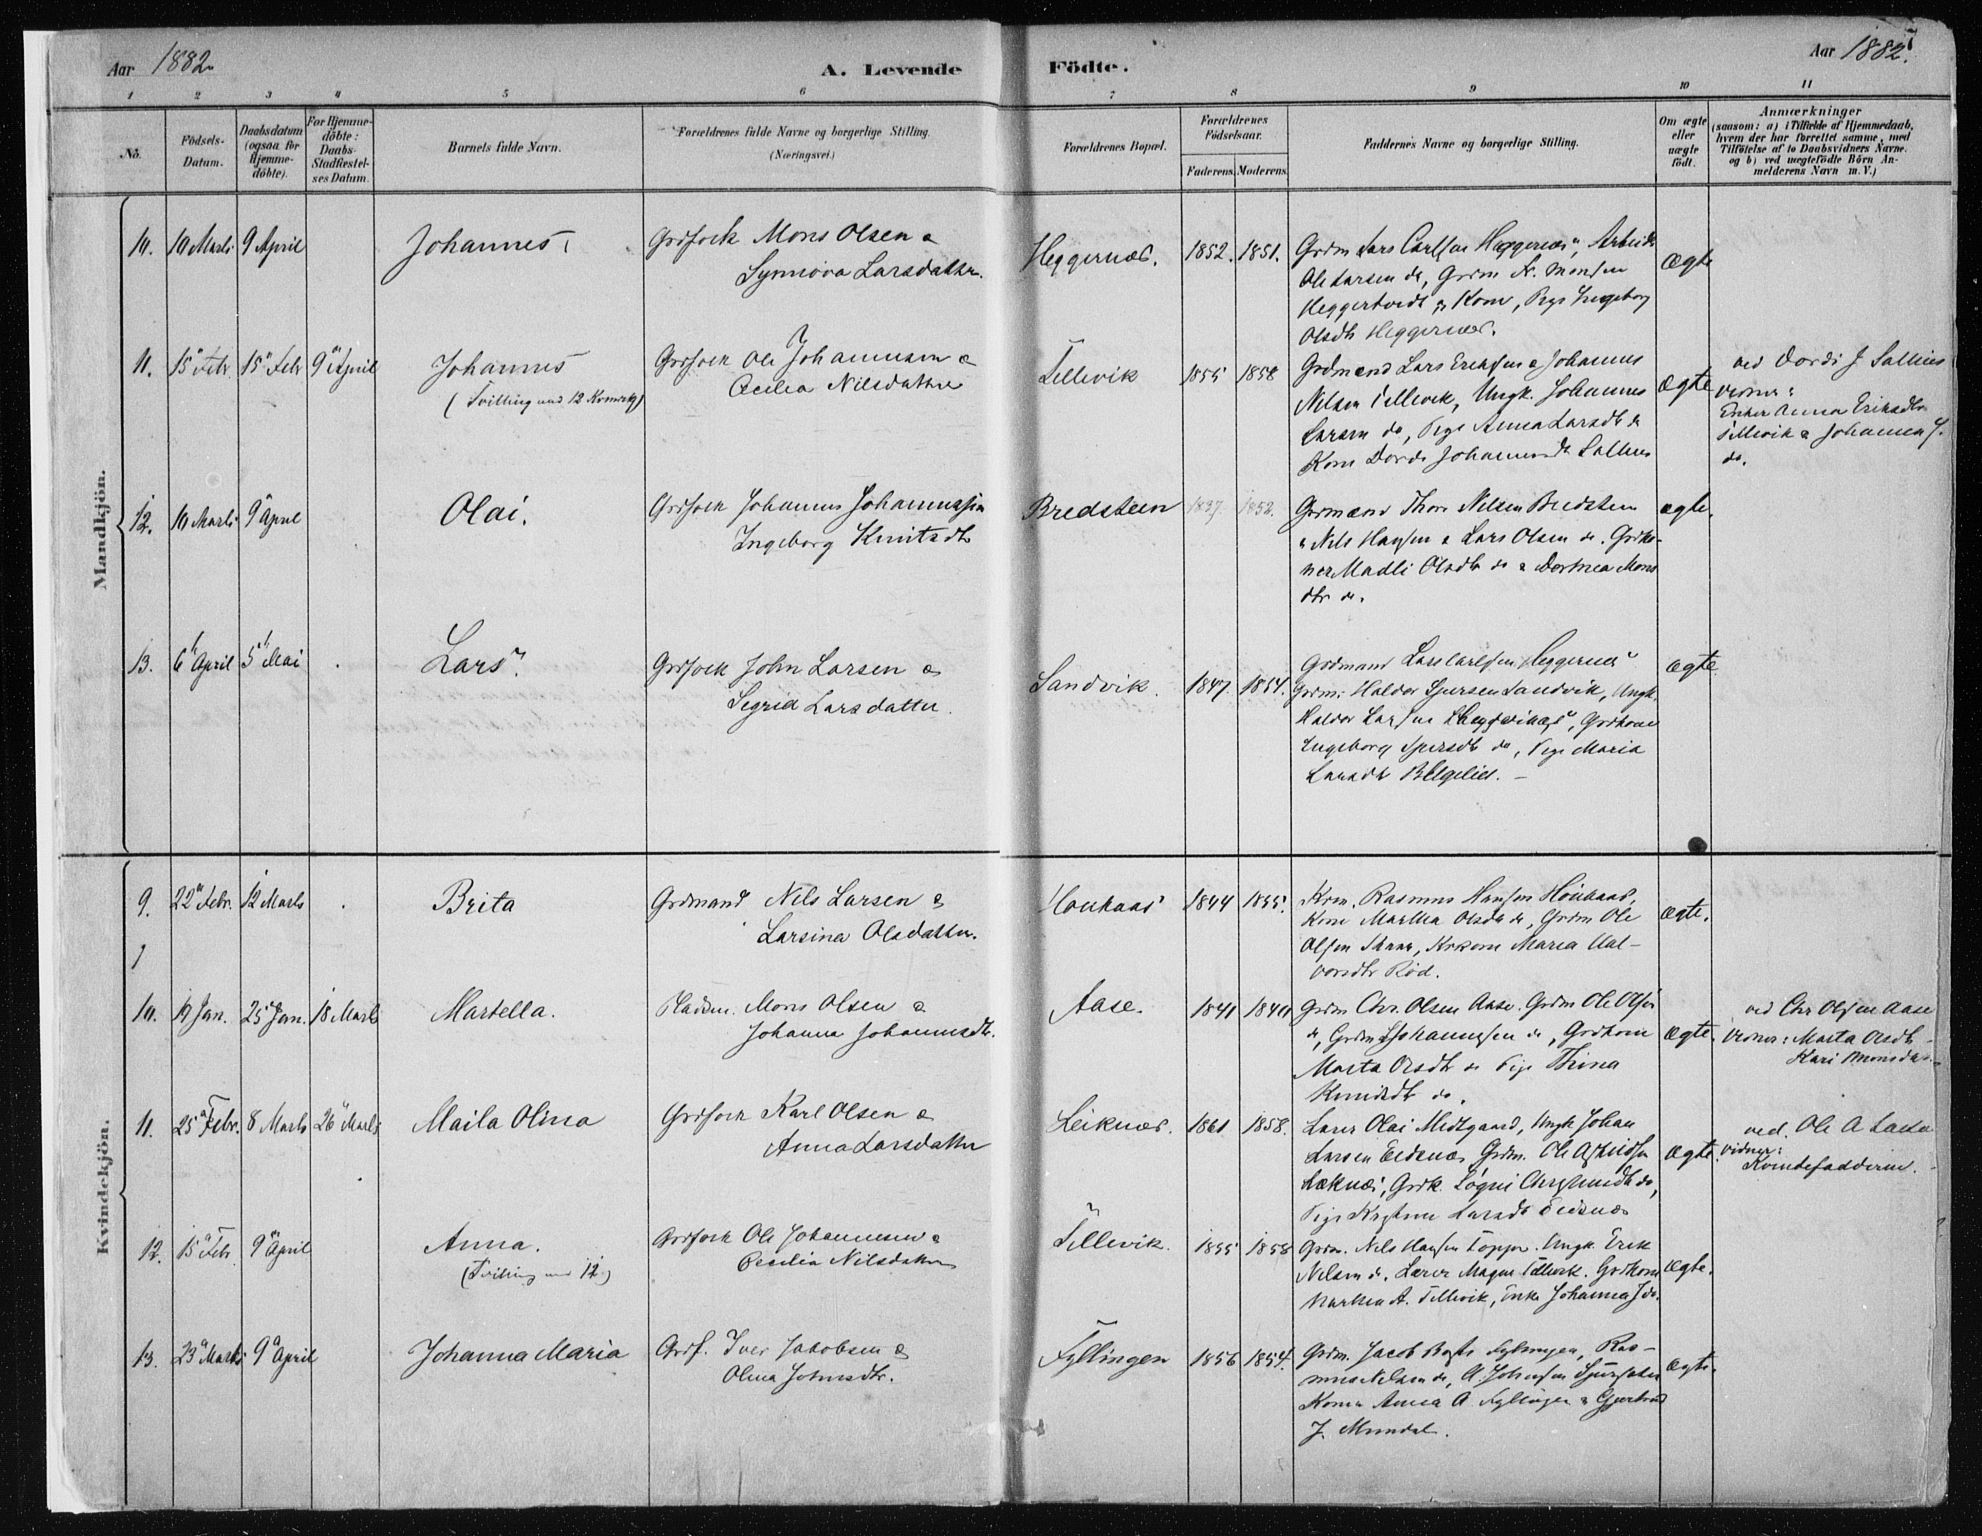 Aar 1882
A. Levende
Födte.
Aar 1882.
7
1 2 3 4 5 6 7 8 9 10 11
No.
Födsels-
Datum.
Daabsdatum
(ogsaa for
Hjemme-
döbte).
For Hjemme-
döbte:
Daabs-
Stadfæstel-
ses Datum.
Barnets fulde Navn.
Forældrenes fulde Navne og borgerlige Stilling.
(Næringsvei.)
Forældrenes Bopæl.
Forældrenes
Födselsaar.
Faderens. Moderens.
Faddernes Navne og borgerlige Stilling.
Om ægte
eller
uægte
födt.
Anmærkninger
(saasom: a) i Tilfælde af Hjemmedaab,
hvem der har forrettet samme, med
Tilföielse af to Daabsvidners Navne.
og b) ved uægtefödte Börn An-
melderens Navn m. V.)
Mandkjön.
10. 10 Marts 9 April
Johannes
Grdfolk Mons Olsen &
Synnöva Larsdatter.
Heggernæs. 1852. 1851.
Grdm Lars Carlsen Heggernæs, Arbeid
Ole Larsen do, Grdm
Kone, Pige Ingeborg
Olsdtr Heggernæs.
ægte
11. 15 Febr. 15 Febr 9 April
Johannes
(Tvilling med 12 Kvindekj)
Grdfolk Ole Johannesen &
Cecilia Nilsdatter
Tellevik 1855 1858
Grdmænd Lars Eriksen & Johannes
Nilsen Tellevik, Ungk. Johannes
Larsen do, Pige Anna Larsdtr do
Kone Dorde Johannesdtr
ægte
ved Dorde J
Vidner:
Enken Anna Eriksdtr
Tellevik & Johanna J.
do.
12. 10 Marts 9 April
Olai.
Grdfolk Johannes Johannessen
Ingeborg Knutsdtr
Bredsteen 1837. 1852.
Grdmænd Thore Nilsen Bredsteen
& Nils Hansen & Lars Olsen do. Grdko-
ner Madli Olsdtr do & Dorthea Mons
dtr do.
ægte.
13. 6 April 5 Mai
Lars.
Grdfolk John Larsen &
Segrid Larsdatter.
Sandvik. 1847. 1854.
Grdmand Lars Carlsen Heggernæs
Grdm: Haldor Sjursen Sandvik, Ungk.
Haldor Larsen Heggernæs, Grdkone
Ingeborg Sjursdtr do, Pige Maria
Larsdtr
ægte
Kvindekjön.
9. 22 Febr. 12 Marts
Brita
Grdmand Nils Larsen &
Larsina Olsdatter.
Houkaas 1844 1855.
Krm. Rasmus Hansen Houkaas,
Kone Martha Olsdtr do, Grdm Ole
Olsen, Kone Maria Hal-
vorsdtr Röd.
ægte.
10. 19 Jan. 25 Jan. 18 Marts
Martella.
Pladsm. Mons Olsen &
Johanna Johannesdtr.
Aase. 1841 1840
Grdm Chr. Olsen Aase. Grdm Ole Olsen
do, Grdm Johannesen do, Grdkone
Marta Olsdtr do Pige Thrina
Knudsdtr do.
ægte.
ved Chr Olsen Aase
Vidner: Marta Olsdtr
Kari Monsdtr
11. 25 Febr. 8 Marts 26 Marts
Maila Olina
Grdfolk Karl Olsen &
Anna Larsdatter
Leiknæs. 1861 1858.
Lærer Olai Midtgaard, Ungk Johan
Larsen Eidsnæs Grdm. Ole
Leknæs, Grdk.
Pige Larsdtr Eidsnæs
ægte.
ved. Ole A
Vidner:
Kvindefadderne.
12. 15 Febr 9 April
Anna.
(Tvilling med 12.)
Grdfolk Ole Johannesen &
Cecilia Nilsdatter
Tellevik. 1855 1858
Grdm. Nils Hansen Toppe. Ungk. Erik
Nilsen do. Lærer Magne Tellevik. Grdkone
Martha A. Tellevik, Enke Johanna J do.
ægte.
13. 23 Marts 9 April
Johanna Maria
Grdf. Iver Jakobsen &
Olina Johnsdtr.
Fyllingen 1856 1854.
Grdm. Jacob Fyllingen, Ras-
mus Nilsen do, A. Johnsen
Kone Anna A Fyllingen &
J. Mundal.
ægte.